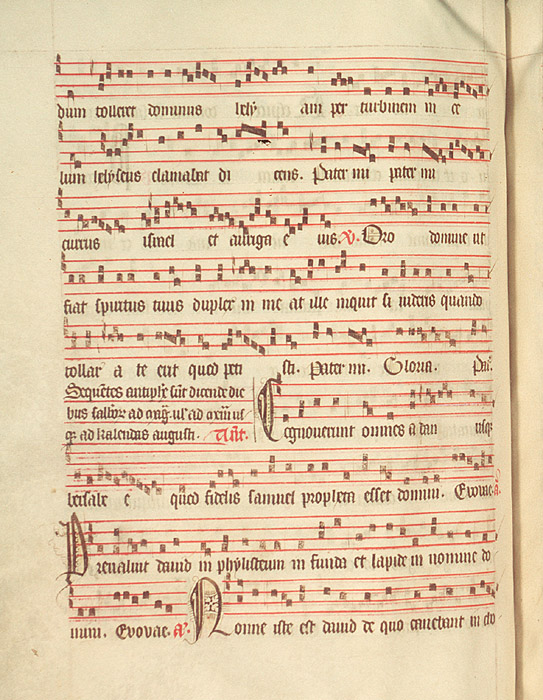 dum tolleret dominus hely am per turbinem in ce
lum helyseus clamabat di cens. Pater mi pater mi
currus israel et auriga e ius. V. Oro domine ut
fiat spiritus tuus duplex in me at ille inquit si videris quando
tollar a te erit quod peti sti. Pater mi. Gloria. Pat.
Sequentes antiphe sunt dicende die
bus sabbor ad mag. vl' ad
ad kalendas augusti. Ant. Cognoverunt omnes a dan usq
bersabe e quod fidelis samuel propheta esset domini. Evovae. A.
Prevaluit david in phylisteum in funda et lapide in nomine do
mini. Evovae. A. Nonne iste est david de quo canebant in cho